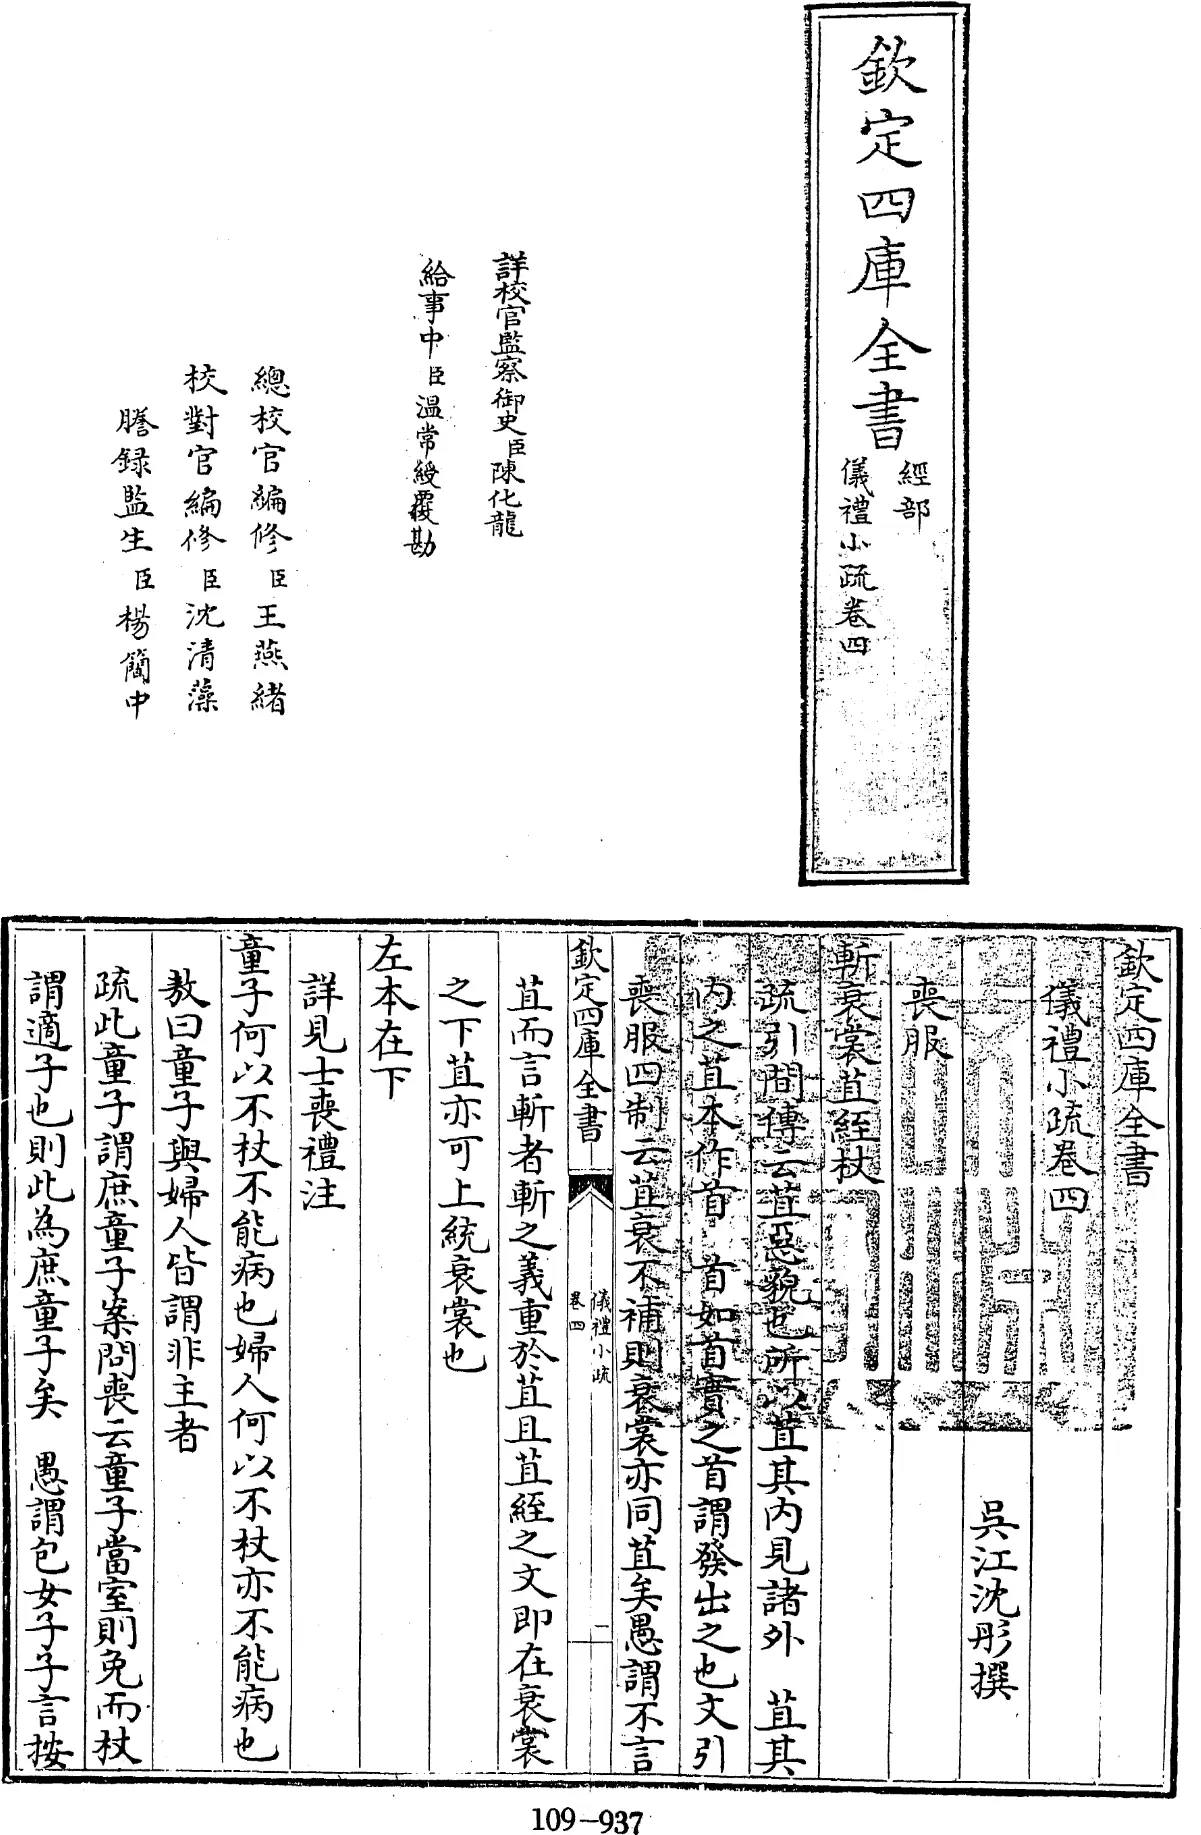 欽定四庫全書
經部
儀禮小疏卷四
詳校官監察御史臣陳化龍
給事中臣温常綬覆勘
總校官編修臣王燕緒
校對官編修臣沈清藻
謄録監生臣楊簡中
欽定四庫全書
儀禮小疏卷四
吳江沈彤撰
喪服
斬衰裳苴絰杖
疏引間傳云苴惡貌也所以苴其内見諸外 苴其
内之苴本作首 首如首實之首謂發出之也文引
喪服四制云苴衰不補則衰裳亦同苴矣愚謂不言
欽定四庫全書
儀禮小疏
卷四
一
苴而言斬者斬之義重於苴且苴絰之文即在衰裳
之下苴亦可上統衰裳也
左本在下
詳見士喪禮注
童子何以不杖不能病也婦人何以不杖亦不能病也
敖曰童子與婦人皆謂非主者
疏此童子謂庶童子案問喪云童子當室則免而杖
謂適子也則此為庶童子矣 愚謂包女子子言按
109-937